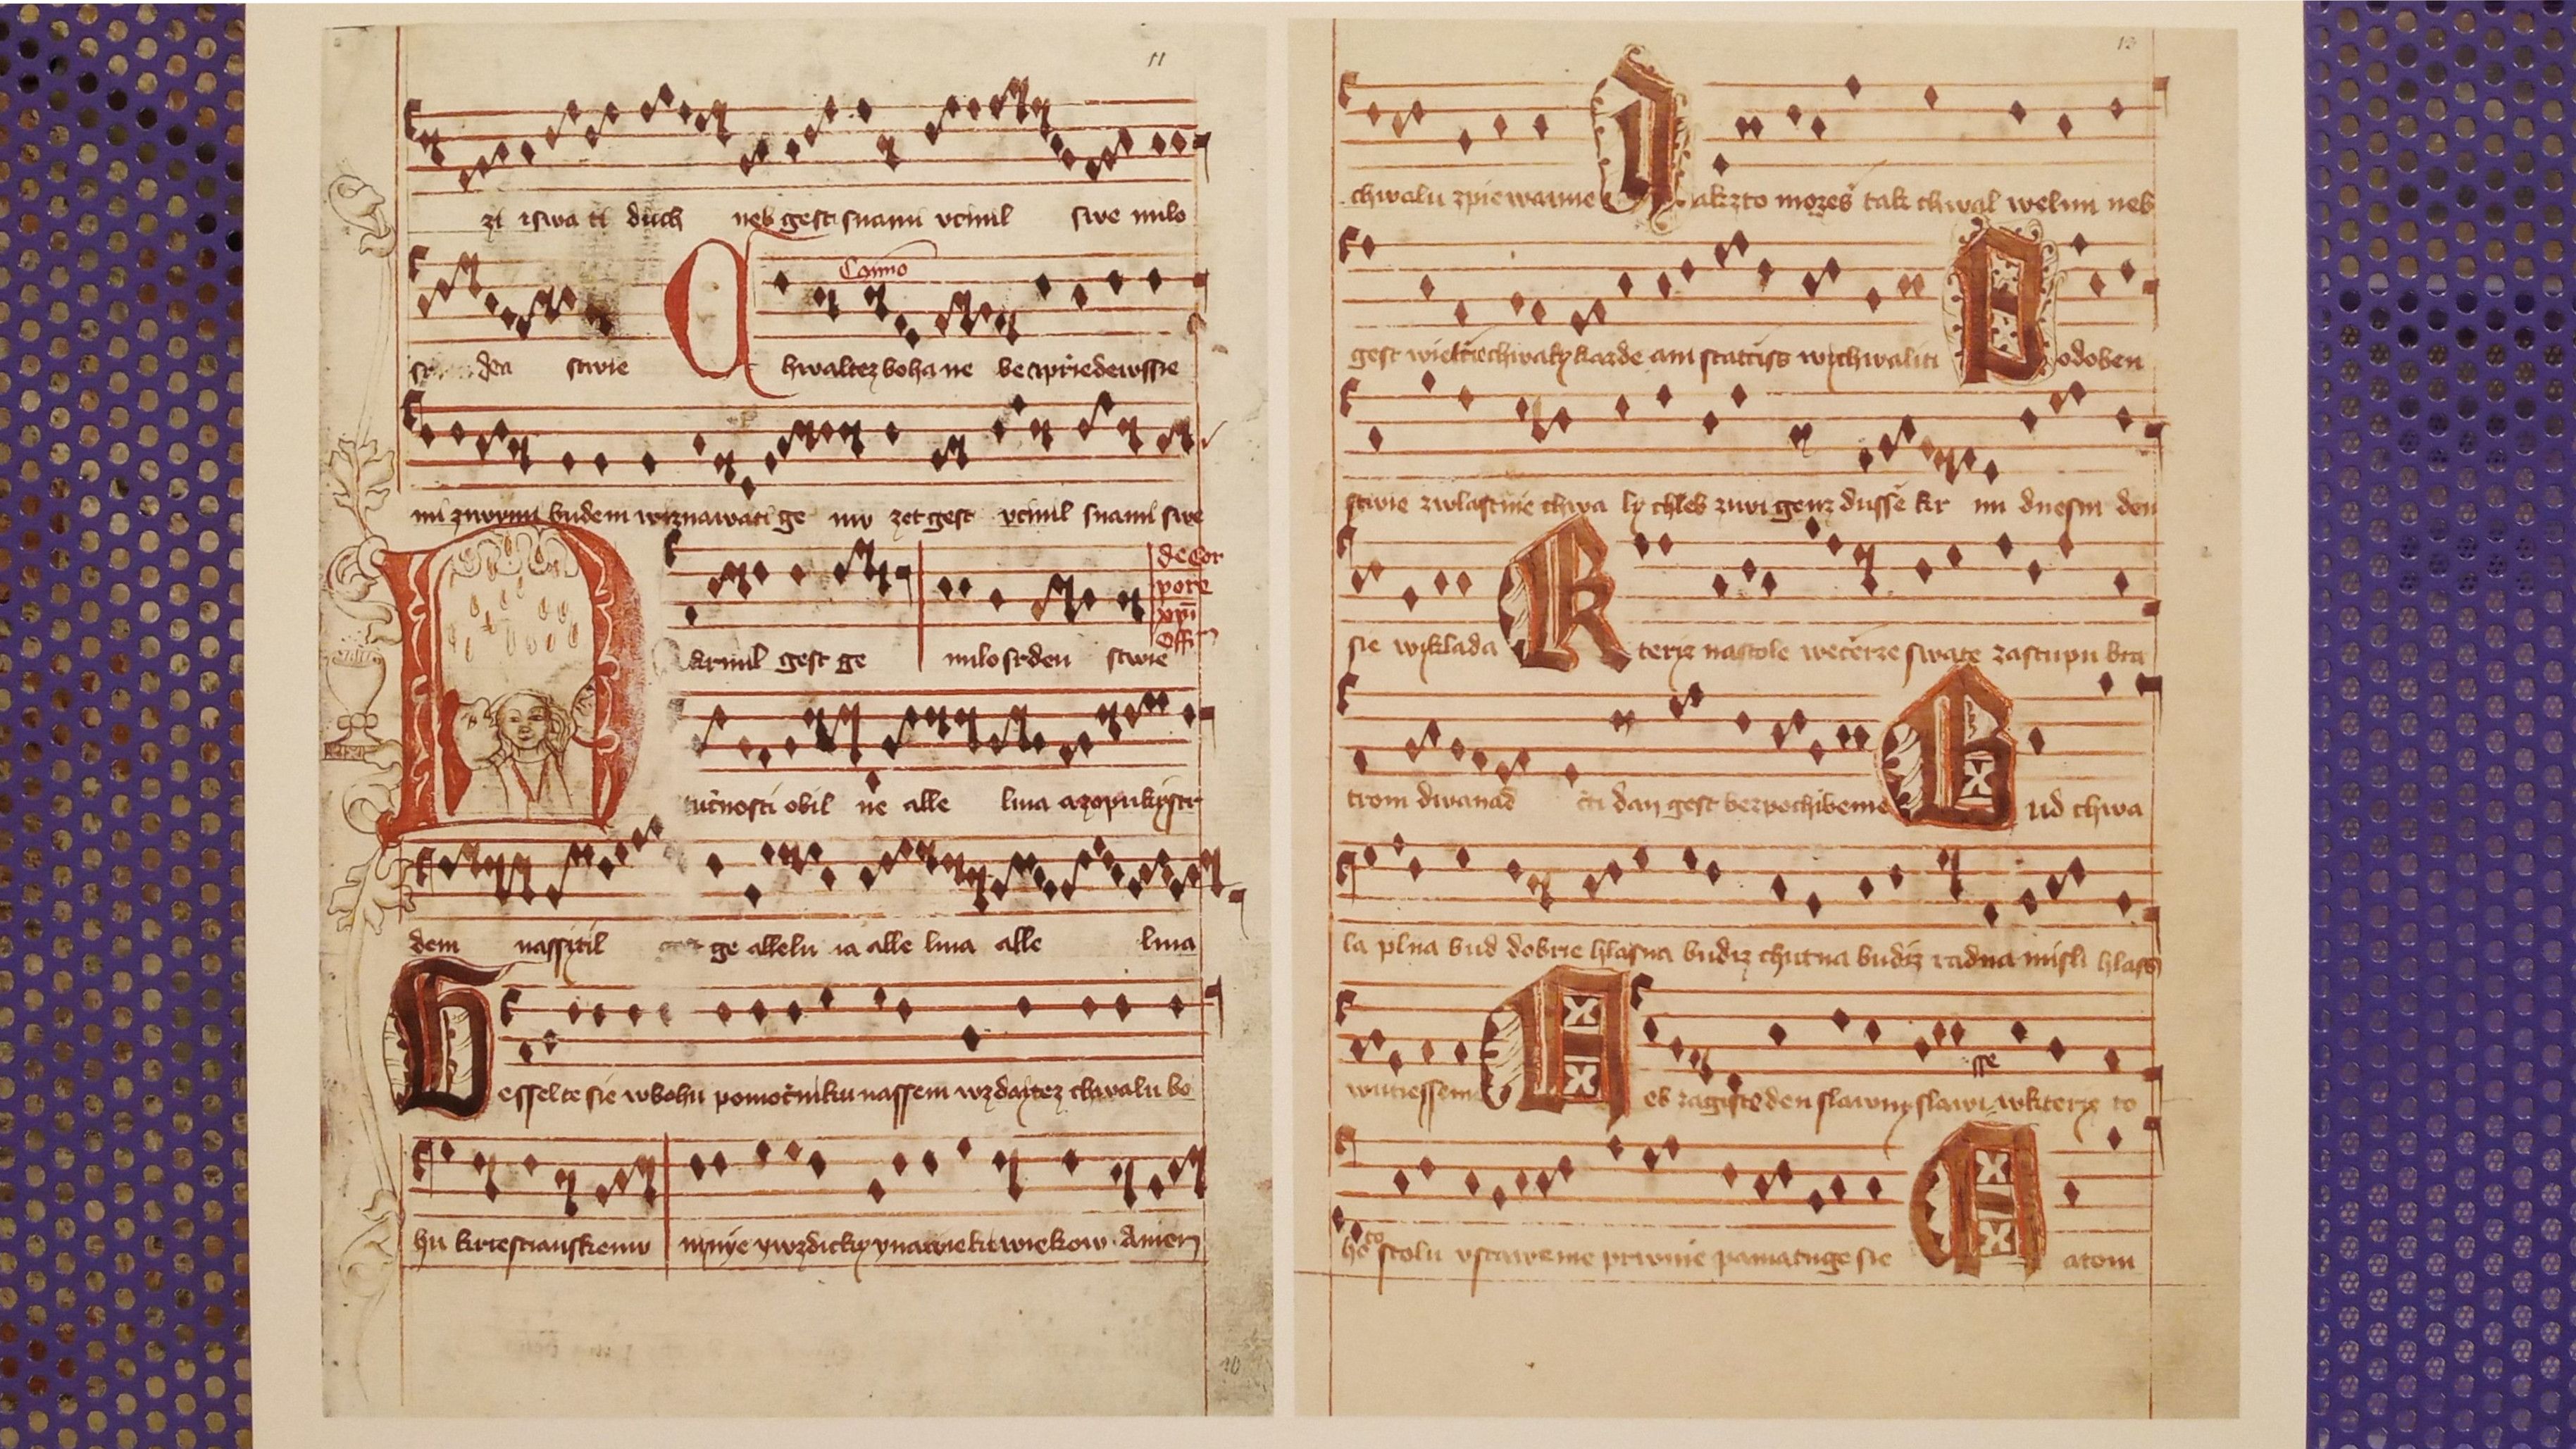 11
zi iswa ti duch neb gest snami vcinil swe milo
Co͞mo
den stwie Chwaltez boha ne be a priedewssie
mi zywymi budem wyznawati ge mv zet gest vcinil snami swe
de Cor
pore
xp̄i
Offi
Narmil gest ge milosrden stwie
tucnosti obil ne alle luia azopuky
dem nassitil ge allelu ia alle luia alle luia
Wesselte sie wbohu pomocniku nassem wzdaytez chwalu bo
hu krzestianskemv nynye ywzdicky ynawieki wiekow Amen
10
chwalu zpiewanie Iakzto mozes tak chwal welmi neb
gest wietcie chwaly kazde ani staciss wychwaliti Podoben
stwie zwlastnie chwa ly chleb zuwi genz dusse kr mi dnesni den
sie wyklada Kteryz nastole wecerze swate zastupu bra
trom dwanad cti dan gest bezpochibenie Bud chwa
la plna bud dobrie hlasna budiz chutna budiz radna misli hlass
sse
wutiessem Neb zagiste den slawny slawi wkteryz to
hoto stolu vstawenie prwnie pamatuge sie Natom